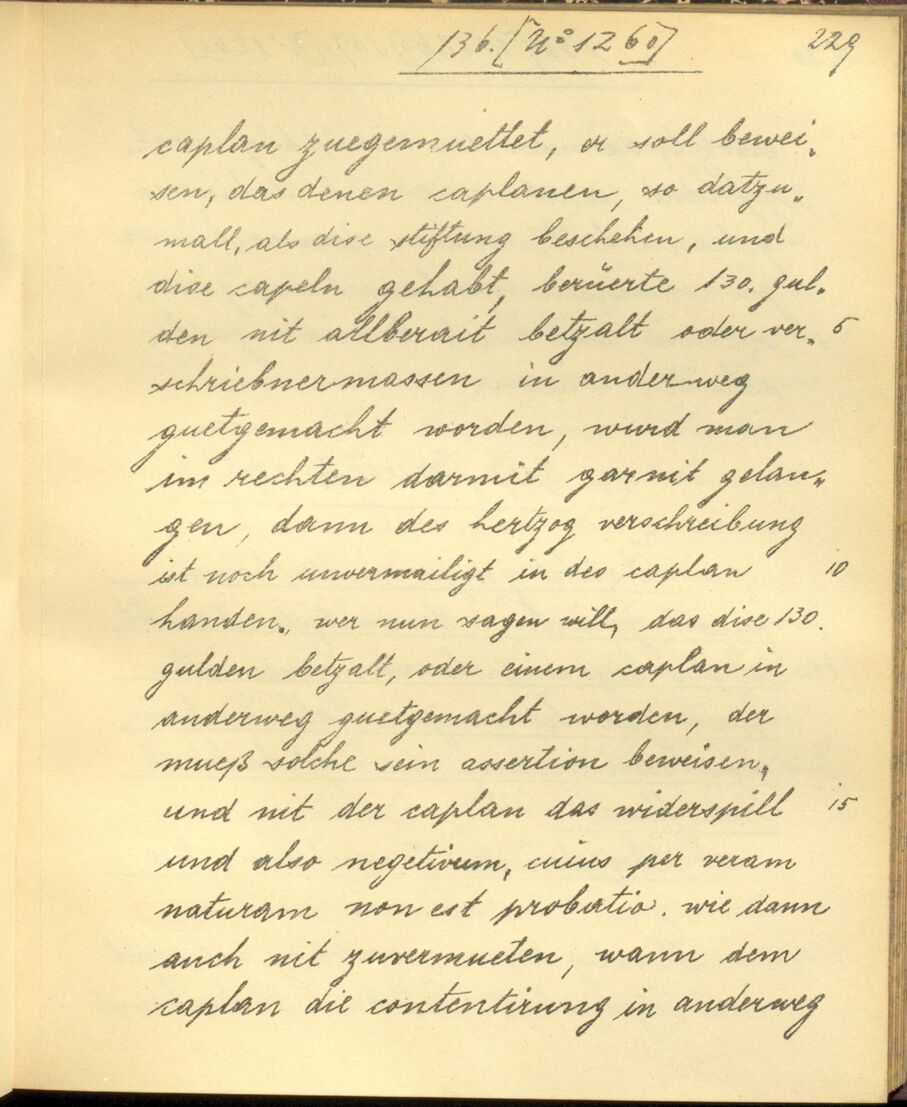 136. [N° 1260] 229
caplan zuegemuettet, er soll bewei„
sen, das denen caplanen, so datzu„
mall, als dise stiftung beschehen, und
dise capeln gehabt, berüerte 130. gul„
den nit allberait betzalt oder ver„ 5
schriebnermassen in anderweg
guetgemacht worden, wurd man
im rechten darmit garnit gelan„
gen, dann des hertzog verschreibung
ist noch unvermailigt in des caplan 10
handen., wer nun sagen will, das dise 130.
gulden betzalt, oder einem caplan in
anderweg guetgemacht worden, der
mueß solche sein assertion beweisen,
und nit der caplan das widerspill 15
und also negetivum, cuius per veram
naturam non est probatio. wie dann
auch nit zuvermueten, wann dem
caplan die contentirung in anderweg